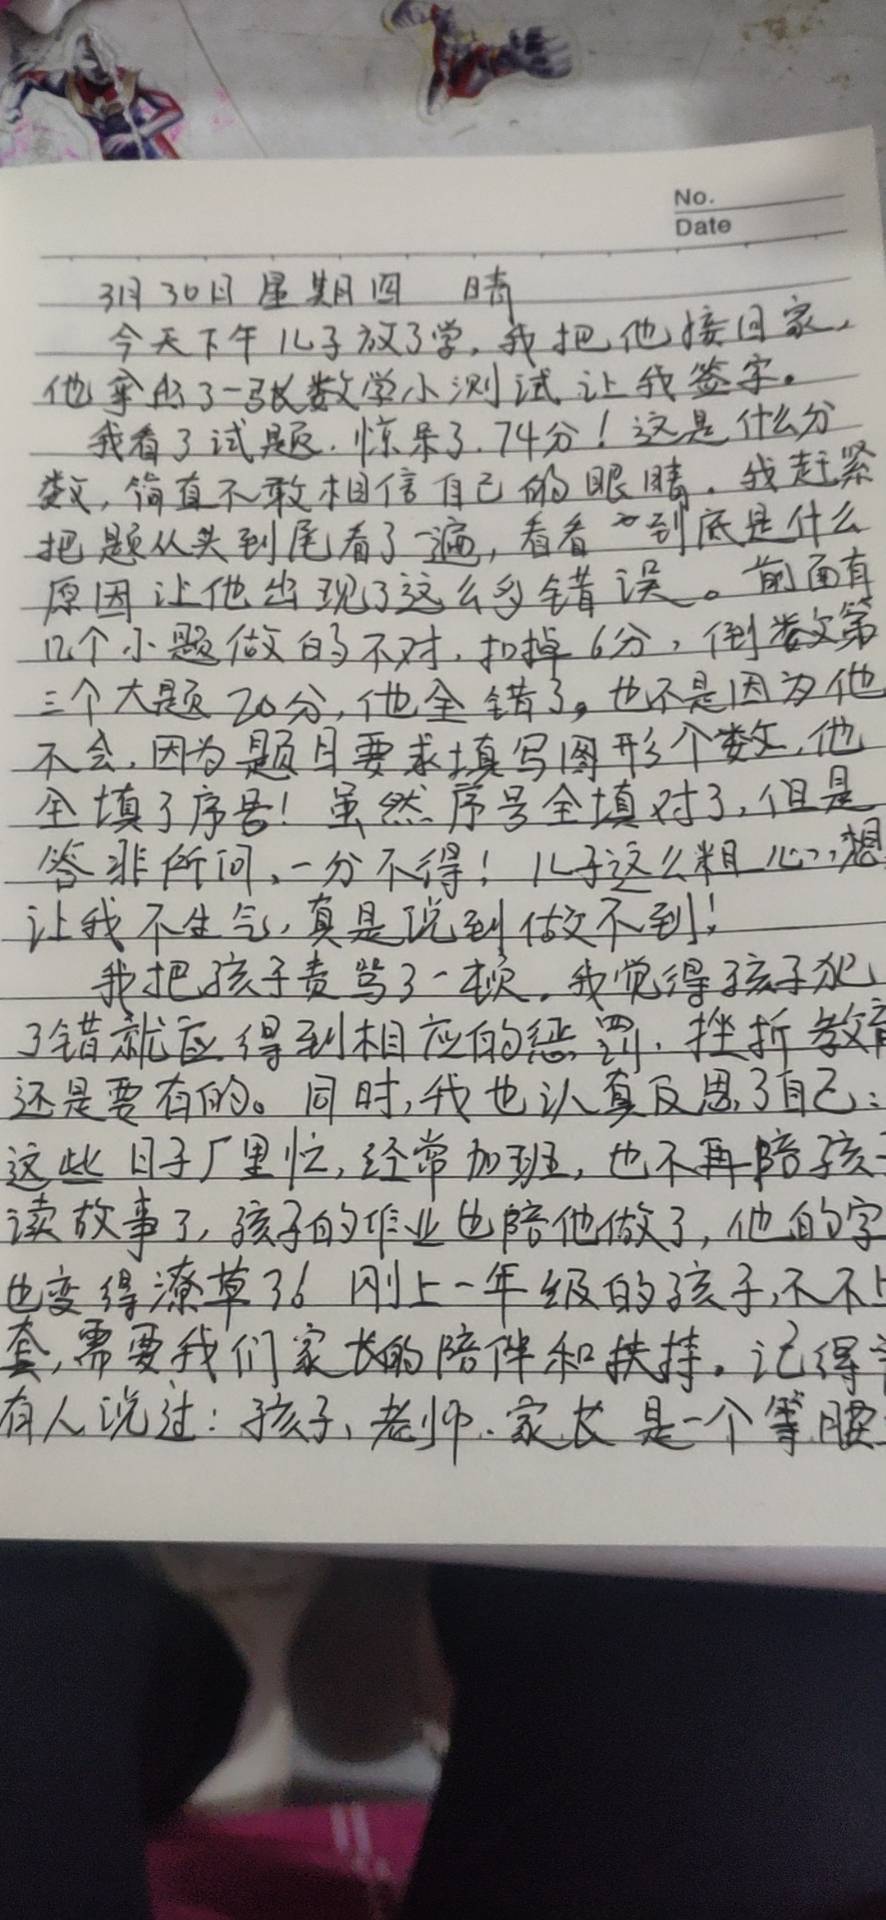 No.
Date
3月30日 星期四 晴
今天下午儿子放了学,我把他接回家,
他拿出了一张数学小测试让我签字。
我看了试题,惊呆了.74分!这是什么分
数,简直不敢相信自己的眼睛.我赶紧
把题从头到尾看了一遍,看看 到底是什么
原因让他出现了这么多错误。前面有
几个小题做的不对,扣掉6分,倒数第
三个大题20分,他全错了。也不是因为他
不会,因为题目要求填写图形个数,他
全填了序号!虽然序号全填对了,但是
答非所问,一分不得!儿子这么粗心,想
让我不生气,真是说到做不到!
我把孩子责骂了一顿.我觉得孩子犯
了错就应得到相应的惩罚.挫折教育
还是要有的。同时,我也认真反思了自己:
这些日子厂里忙,经常加班,也不再陪孩子
读故事了,孩子的作业也陪他做了,他的字
也变得潦草了。刚上一年级的孩子,不
套,需要我们家长的陪伴和扶持.记得
有人说过:孩子、老师、家长是一个等腰